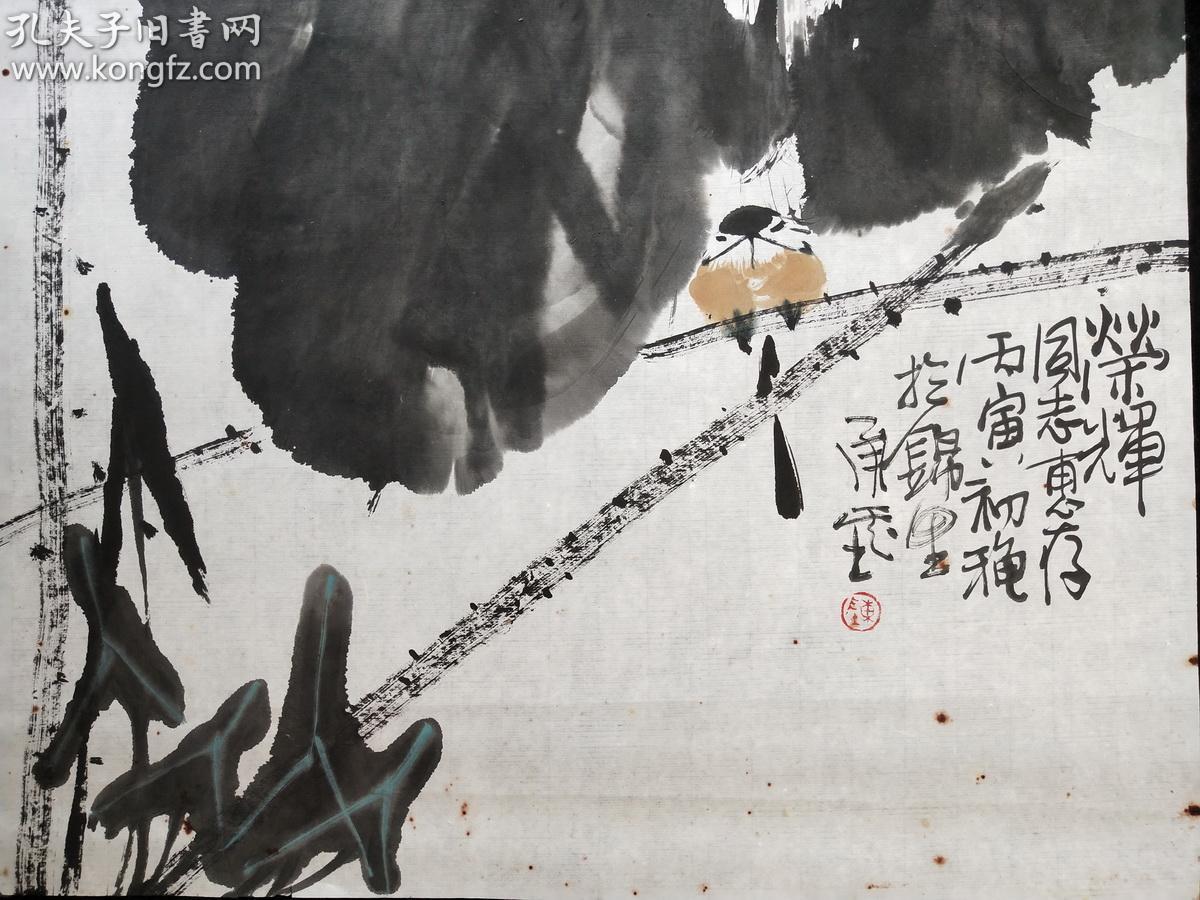 孔夫子旧書网
www.kongfz.com
榮輝
同志惠存
丙寅初穐
於錦里